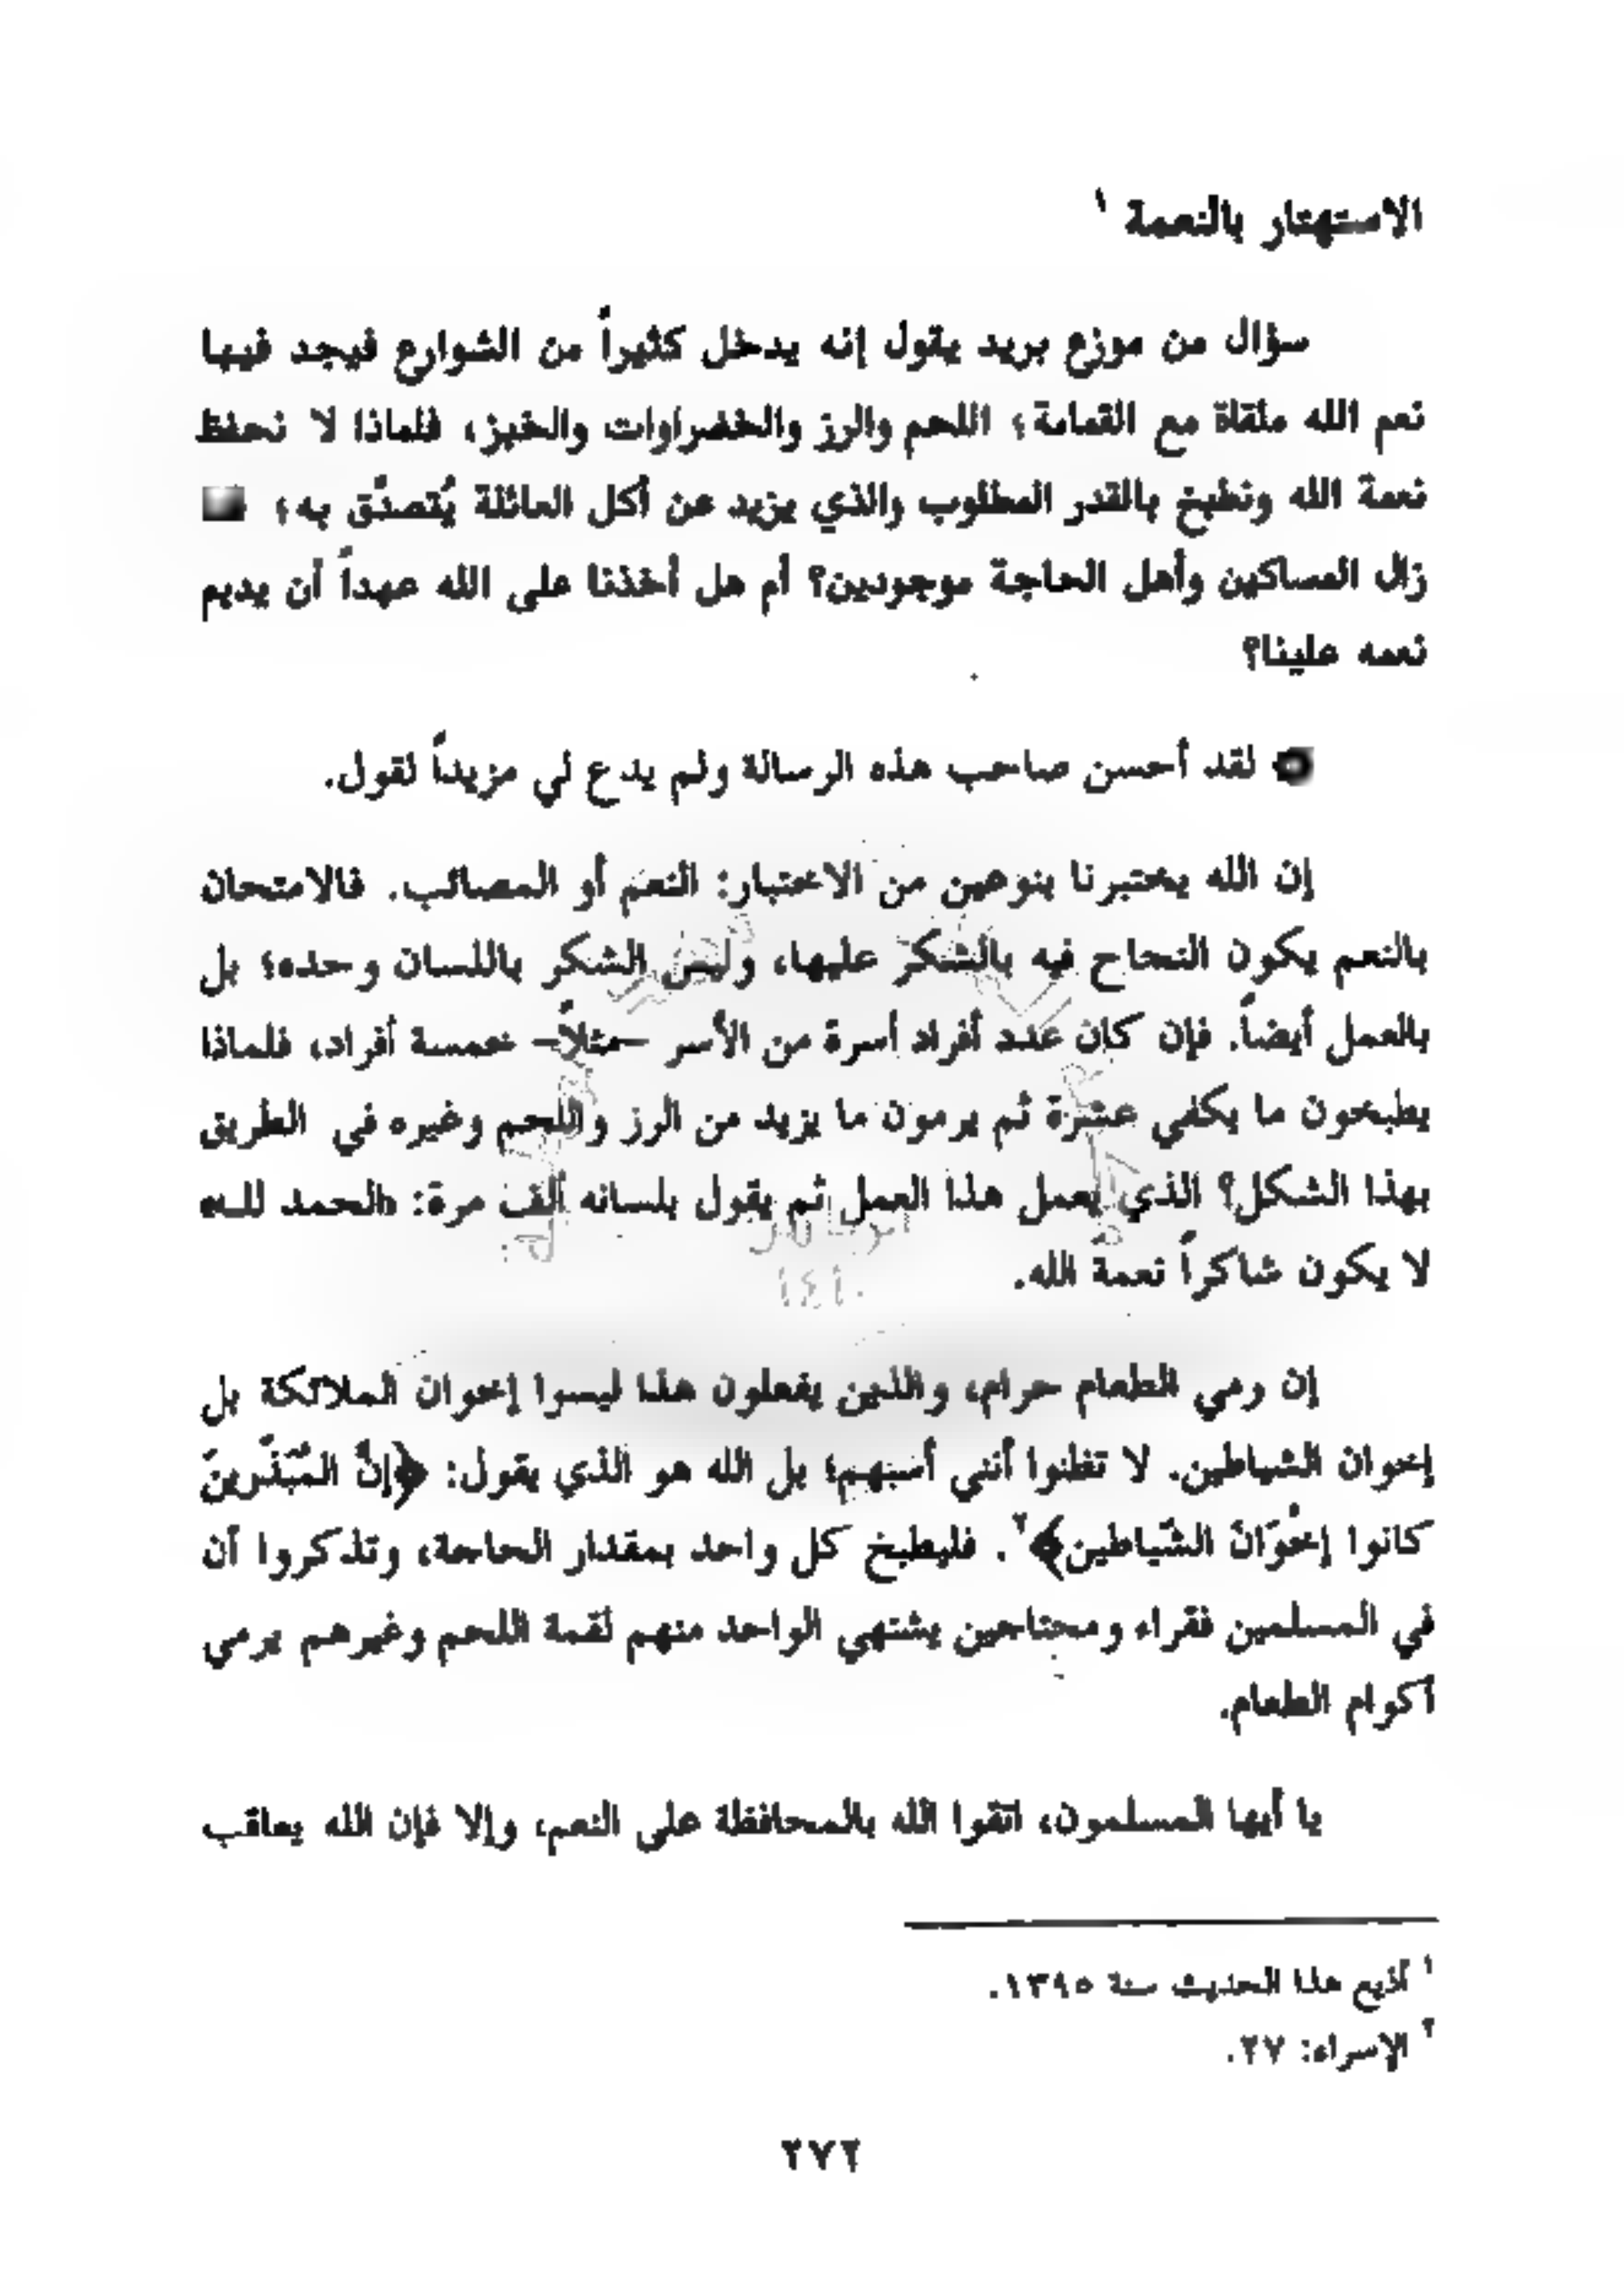 الاستهتار بالنعمة ١
سؤال من موزع بريد يقول إنه يدخل كثيراً من الشوارع فيجد فيها
نعم الله ملقاة مع القمامة؛ اللحم والرز والخضراوات والخبز، فلماذا لا نحفظ
نعمة الله ونطبخ بالقدر المطلوب والذي يزيد عن أكل العائلة يُتصدَّق به؛
زال المساكين وأهل الحاجة موجودين؟ أم هل أخذنا على الله عهداً أن يديم
نعمه علينا؟
لقد أحسن صاحب هذه الرسالة ولم يدع لي مزيداً لقول.
إن الله يختبرنا بنوعين من الاختبار: النعم أو المصائب. فالامتحان
بالنعم يكون النجاح فيه بالشكر عليها، وليس الشكر باللسان وحده؛ بل
بالعمل أيضاً. فإن كان عدد أفراد أسرة من الأسر -مثلاً- خمسة أفراد، فلماذا
يطبخون ما يكفي عشرة ثم يرمون ما يزيد من الرز واللحم وغيره في الطريق
بهذا الشكل؟ الذي يعمل هذا العمل ثم يقول بلسانه ألف مرة: «الحمد لله»
لا يكون شاكراً نعمة الله.
إن رمي الطعام حرام، والذين يفعلون هذا ليسوا إخوان الملائكة بل
إخوان الشياطين. لا تظنوا أنني أسبهم؛ بل الله هو الذي يقول: ﴿إنَّ المُبَذّرينَ
كانوا إخْوَانَ الشّياطين﴾٢. فليطبخ كل واحد بمقدار الحاجة، وتذكروا أن
في المسلمين فقراء ومحتاجين يشتهي الواحد منهم لقمة اللحم وغيرهم يرمي
أكوام الطعام.
يا أيها المسلمون، اتقوا الله بالمحافظة على النعم، وإلا فإن الله يعاقب
١ أذيع هذا الحديث سنة ١٣٩٥.
٢ الإسراء: ٢٧.
٢٧٢